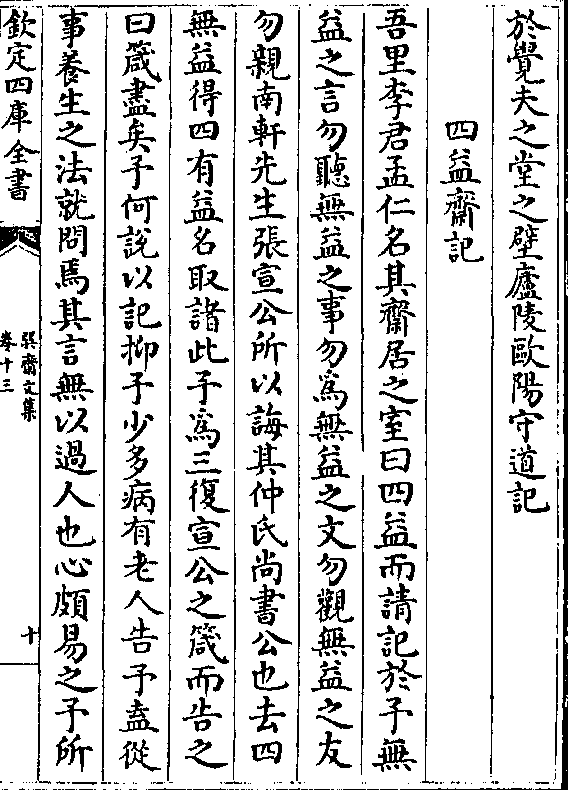 於覺夫之堂之壁廬陵歐陽守道記
四益齋記
吾里李君孟仁名其齋居之室曰四益而請記於予無
益之言勿聽無益之事勿爲無益之文勿觀無益之友
勿親南軒先生張宣公所以誨其仲氏尚書公也去四
無益得四有益名取諸此予爲三復宣公之箴而告之
曰箴盡矣予何說以記抑予少多病有老人告予盍從
事養生之法就問焉其言無以過人也心頗易之予所
欽定四庫全書
巽齋文集
卷十三
十